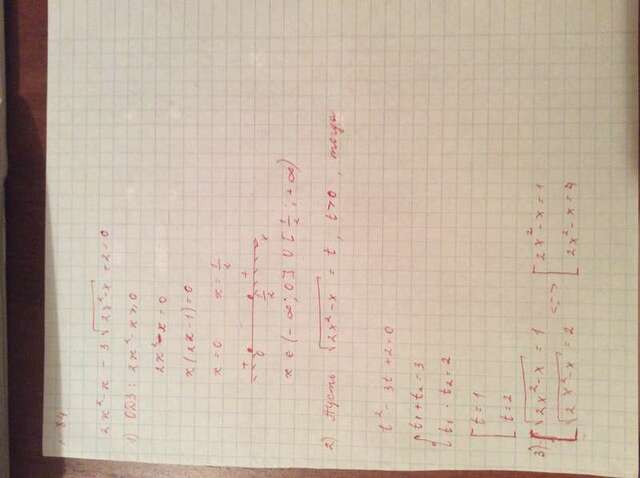 84
2x² - x - 3√(2x² - x) + 2 = 0
1) ОДЗ: 2x² - x ≥ 0
2x² - x = 0
x(2x - 1) = 0
x = 0 x = 1/2
+ +
0 1/2 x
x ∈ (-∞; 0] ∪ [1/2; +∞)
2) Пусть √(2x² - x) = t, t > 0, тогда
t² - 3t + 2 = 0
{ t₁ + t₂ = 3
t₁ · t₂ = 2
[ t = 1
t = 2
3) [ √(2x² - x) = 1 <=> [ 2x² - x = 1
√(2x² - x) = 2 2x² - x = 4